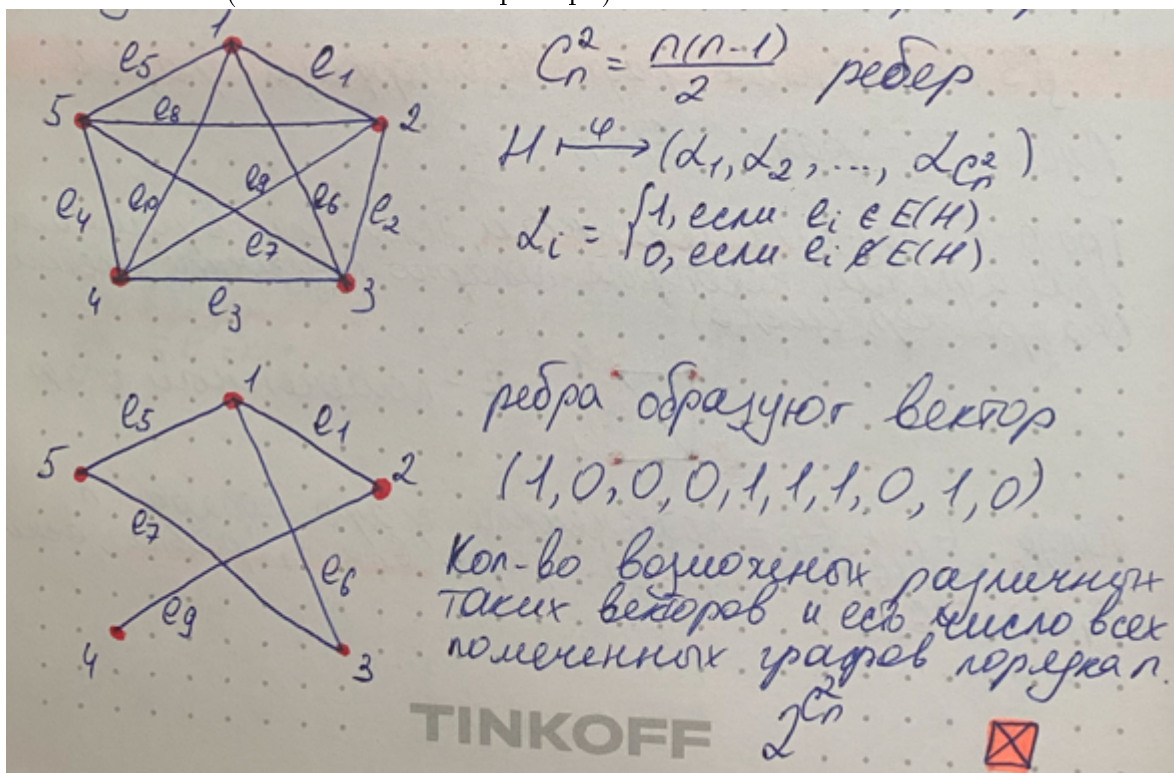 1
e₅ e₁
5 e₈ 2
e₄ e₁₀ e₉ e₆ e₂
e₇
4 e₃ 3
Cₙ² = n(n-1)/2 ребер
H ⟼^φ (α₁, α₂, ..., α_{Cₙ²})
αᵢ = { 1, если eᵢ ∈ E(H)
0, если eᵢ ∉ E(H)
1
e₅ e₁
5 2
e₇ e₆
e₉
4 3
ребра образуют вектор
(1,0,0,0,1,1,1,0,1,0)
Кол-во возможных различных
таких векторов и есть число всех
помеченных графов порядка n.
2^{Cₙ²}
TINKOFF